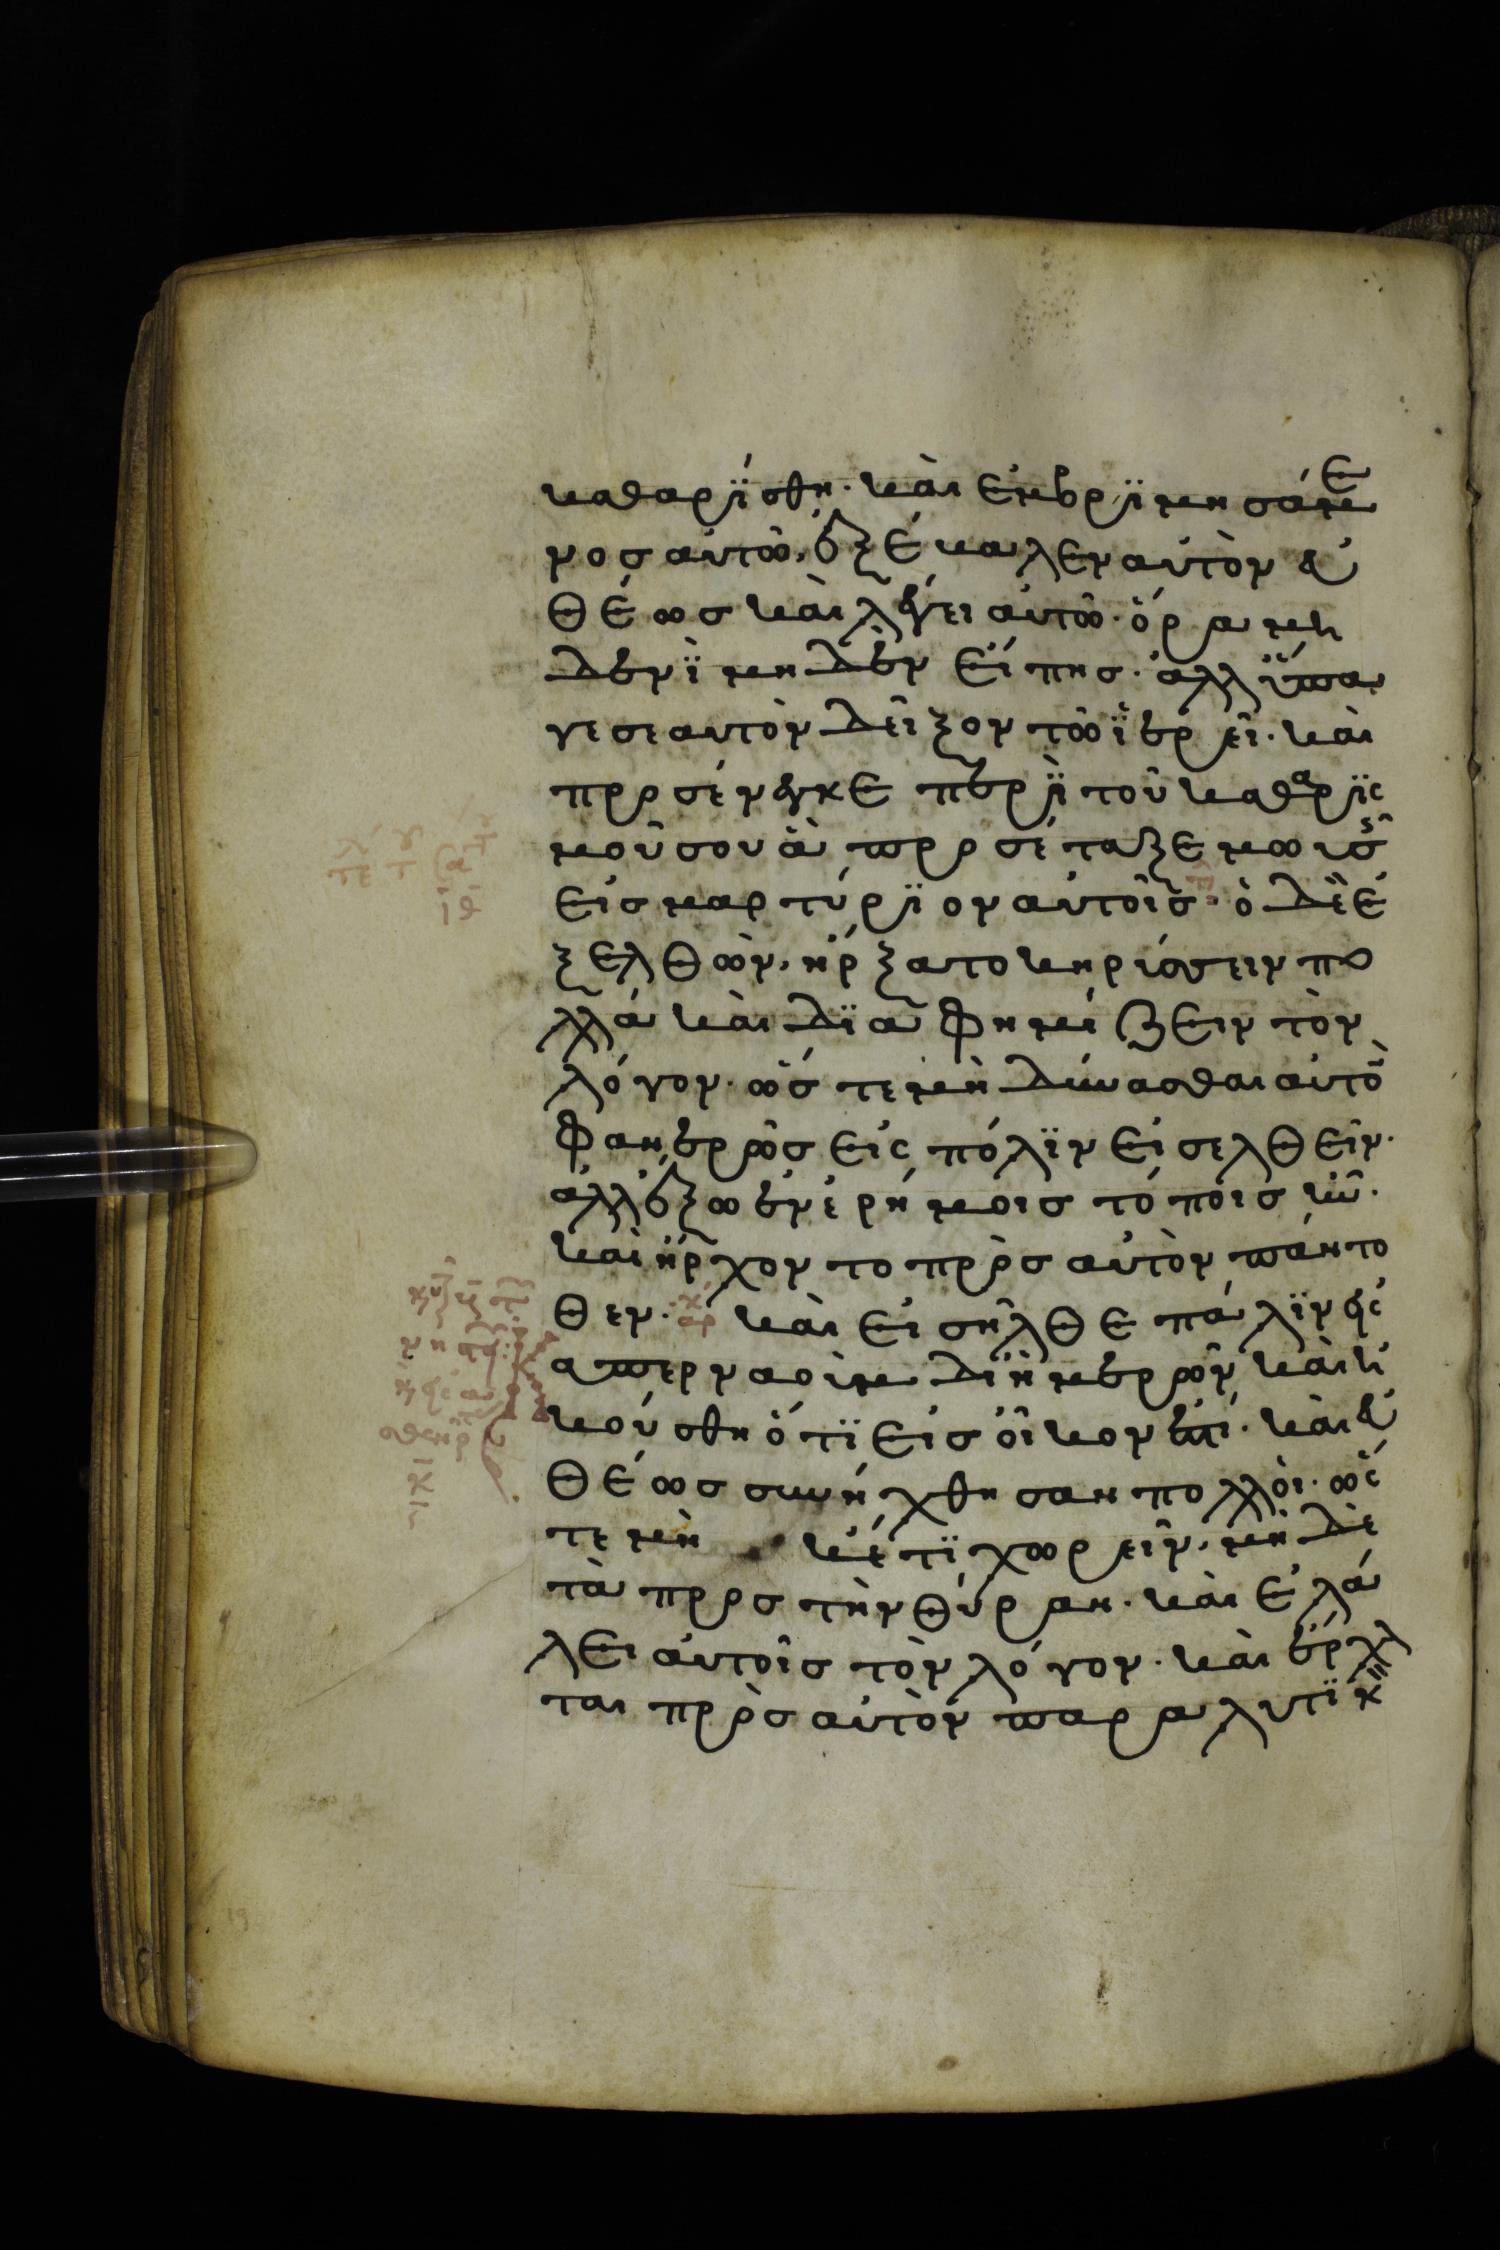 καθαρΐσθη· καὶ ἐμβριμησάμε
νος αὐτῶ, ἐξέβαλεν αὐτὸν εὐ
θέως καὶ λέγει αὐτῶ· ὅρα μη
δενῒ μηδὲν εἴπης· ἀλλ ὕπα
γε σεαυτὸν δεῖξον τῶ ϊερεῖ· καὶ
προσένεγκε περῒ τοῦ καθαρϊς
μοῦ σου ἃ προσέταξε μωισῆς
εἰς μαρτύρϊον αὐτοῖς· ὁ δὲ ἐ
ξελθὼν, ἤρξατο κηρύσσειν πο
λλὰ καὶ δϊαφημίζειν τὸν
λόγον· ὥστε μὴ δύνασθαι αὐτὸ
φανερῶς εἰς πόλϊν εἰσελθεῖν·
ἀλλ ἔξω ἐν ἐρήμοις τόποις ἦν·
καὶ ἤρχοντο πρὸς αὐτὸν πάντο
θεν· καὶ εἰσῆλθε πάλϊν εἰς
καπερναοὺμ δι ἡμερῶν καὶ η
κούσθη ὅτϊ εἰς οἶκον ἐστί· καὶ εὐ
θέως συνήχθησαν πολλοὶ· ὥς
τε μὴ κέτϊ χωρεῖν, μηδὲ
τὰ πρὸς τὴν θύραν· καὶ ἐλά
λει αὐτοῖς τὸν λόγον· καὶ ἔρχο
ται πρὸς αὐτὸν παραλυτϊκ